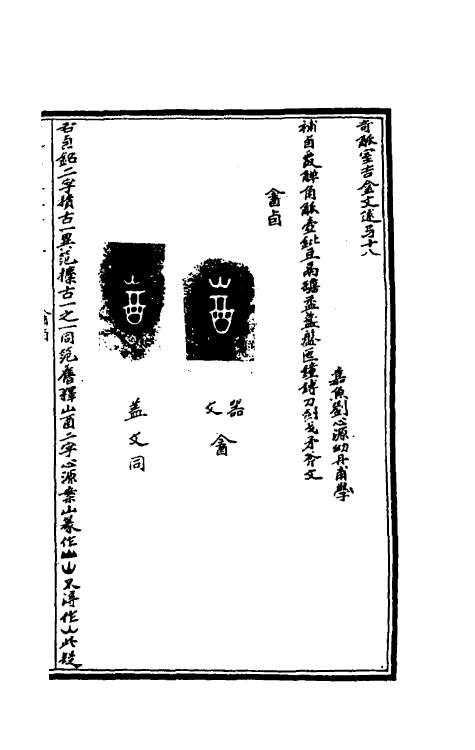 奇觚室吉金文述弓十八
嘉魚劉心源幼丹甫學
補卣爵觶角觚壺鈚豆鬲甗盉盨盤匜鐘鎛刀劍戈矛斧文
畬卣
器文 畬
蓋文同
右卣銘二字積古一異范攈古一之一同范舊釋山酉二字心源案山篆作山不得作此從